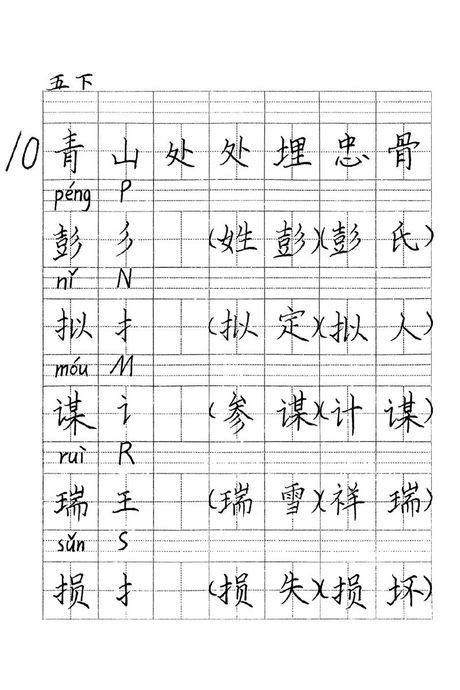 五下
10 青山处处埋忠骨
péng P
彭 彡 (姓彭)(彭氏)
nǐ N
拟 扌 (拟定)(拟人)
móu M
谋 讠 (参谋)(计谋)
ruì R
瑞 王 (瑞雪)(祥瑞)
sǔn S
损 扌 (损失)(损坏)